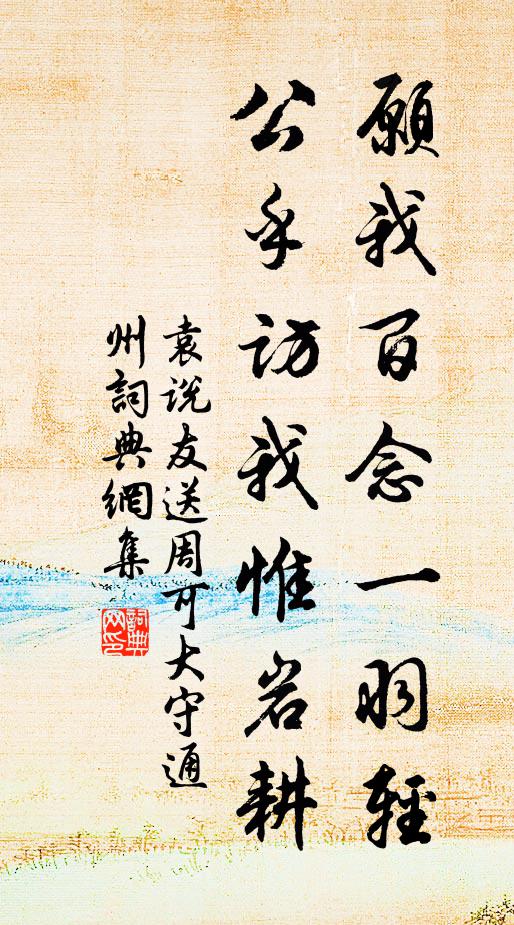 願我百念一羽輕
公乎訪我惟岩耕
袁说友送周可大守通
州詞典網集
詞典
网印